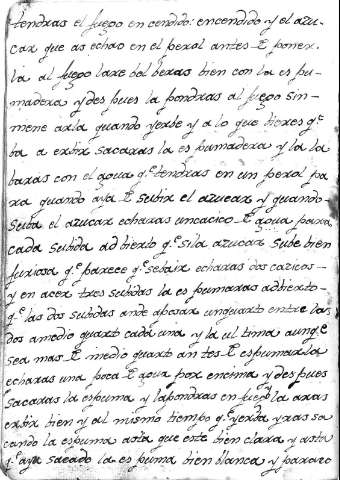 tendras el fuego en cendido: encendido y el azu-
car que as echao en el peral antes E poner.
la al fuego laxe bol beras bien con la es pu-
madera y des pues la pondras al fuego sin-
mene arla quando yerbe y a lo que bieres q.e
ba a erbir sacaras la es pumadera y la la
baras con el agua q.e tendras en un peral pa
ra quando aya E subir el azucar y quando-
suba el azucar echaras un cacico E agua para
cada subida ad bierto q.e si la azucar sube bien
furiosa q.e parece q.e se báir echaras dos cacicos-
y en acer tres subidas la es pumaras adbierto-
q.e las dos subidas ande aposar un quarto entre las
dos amedio quart cada una y la ul tima aunq.e
sea mas E medio quart an tes E espumarla
echaras una poca E agua por encima y des pues
sacaras la espuma y la pondras en fuego la aras
erbir bien y al mismo tiempo q.e yerba yras sa
cando la espuma asta que este bien clara y asta
q.e aya sacado la es puma bien blanca y pararo